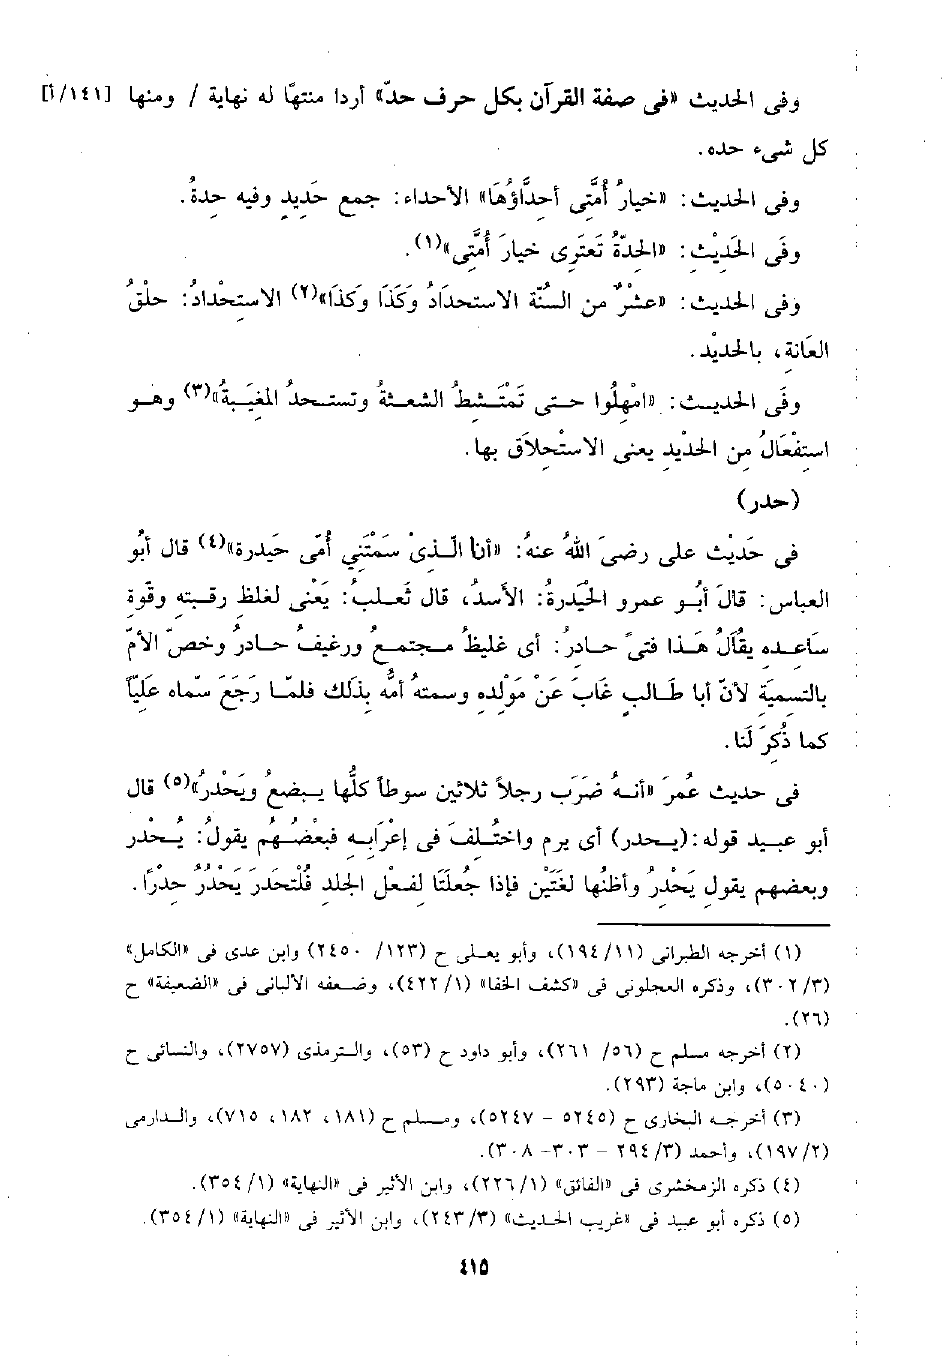 وفى الحديث «فى صفة القرآن بكل حرف حدّ» أردا منتهًا له نهاية / ومنها [١٤١/أ]
كل شىء حده.
وفى الحديث: «خيارُ أُمَّتِى أحِدَّاؤُهَا» الأحداء: جمع حَديدٍ وفيه حِدةُ.
وفَى الحَديْث: «الحِدّةُ تَعتَرِى خيارَ أُمَّتِى»(١).
وفى الحديث: «عشْرٌ من السُنّة الاستحدَادُ وَكَذَا وَكَذَا»(٢) الاستِحْدادُ: حلْقُ
العَانة، بالحَديْدِ.
وفَى الحديث: «امْهِلُوا حتى تَمْتَشِطُ الشعثةُ وتستحدُ المُغِيَبةُ»(٣) وهو
استِفْعَالُ مِن الحَدْيِدِ يعنِى الاستْحِلاَق بها.
(حدر)
فى حَدَيْث على رضىَ اللهُ عنهُ: «أنا الّذىْ سَمَتْنِي أُمّى حَيدرة»(٤) قال أبُو
العباس: قالَ أبُو عمرو الحَيْدرةُ: الأسدُ، قال ثَعلبُ: يَعْنى لغِلظ رقبِته وقوة
سَاعدِه يقُالُ هَذا فتىً حادرُ: أى غليظُ مجتمِع ورغيفُ حادرُ وخصّ الأمّ
بالتسمِيَة لأنّ أبا طَالبٍ غَابَ عَنْ مَوْلدِه وسمتهُ أمُّه بذلك فلمّا رَجَعَ سّماه عَلِيّاً
كما ذُكِرَ لَنا.
فى حديث عُمرَ «أنهُ ضَرَب رجلاً ثلاثين سوطاً كلُّها يبضعُ ويَحْدرُ»(٥) قال
أبو عبيد قوله: (يحدر) أى يرم واختُلفَ فى إعْرَابِه فبعضُهُم يقولُ: يُحْدر
وبعضهم يقول يَحْدِرُ وأظنُها لغَتَيْن فإذا جعلتَا لفعْل الجلد قلتحدَرَ يَحْدُرُ حدْرًا.
(١) أخرجه الطبرانى (١١/١٩٤)، وأبو يعلى ح (١٢٣/ ٢٤٥٠) وابن عدى فى «الكامل»
(٣/٣٠٢)، وذكره العجلونى فى «كشف الخفا» (٤٢٢/١)، وضعفه الألبانى فى «الضعيفة» ح
(٢٦).
(٢) أخرجه مسلم ح (٥٦/ ٢٦١)، وأبو داود ح (٥٣)، والترمذى (٢٧٥٧)، والنسائى ح
(٥٠٤٠)، وابن ماجة (٢٩٣).
(٣) أخرجه البخارى ح (٥٢٤٥ – ٥٢٤٧)، ومسلم ح (١٨١، ١٨٢، ٧١٥)، والدارمى
(١٩٧/٢)، وأحمد (٣/ ٢٩٤ – ٣٠٣- ٣٠٨).
(٤) ذكره الزمخشرى فى «الفائق» (٢٢٦/١)، وابن الأثير فى «النهاية» (١/ ٣٥٤).
(٥) ذكره أبو عبيد فى «غريب الحديث» (٢٤٣/٣)، وابن الأثير فى «النهاية» (١/ ٣٥٤).
٤١٥